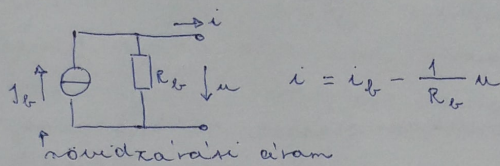 → i
I_b ↑ R_b ↓ u i = i_b - 1/R_b u
↑ rövidzárási áram